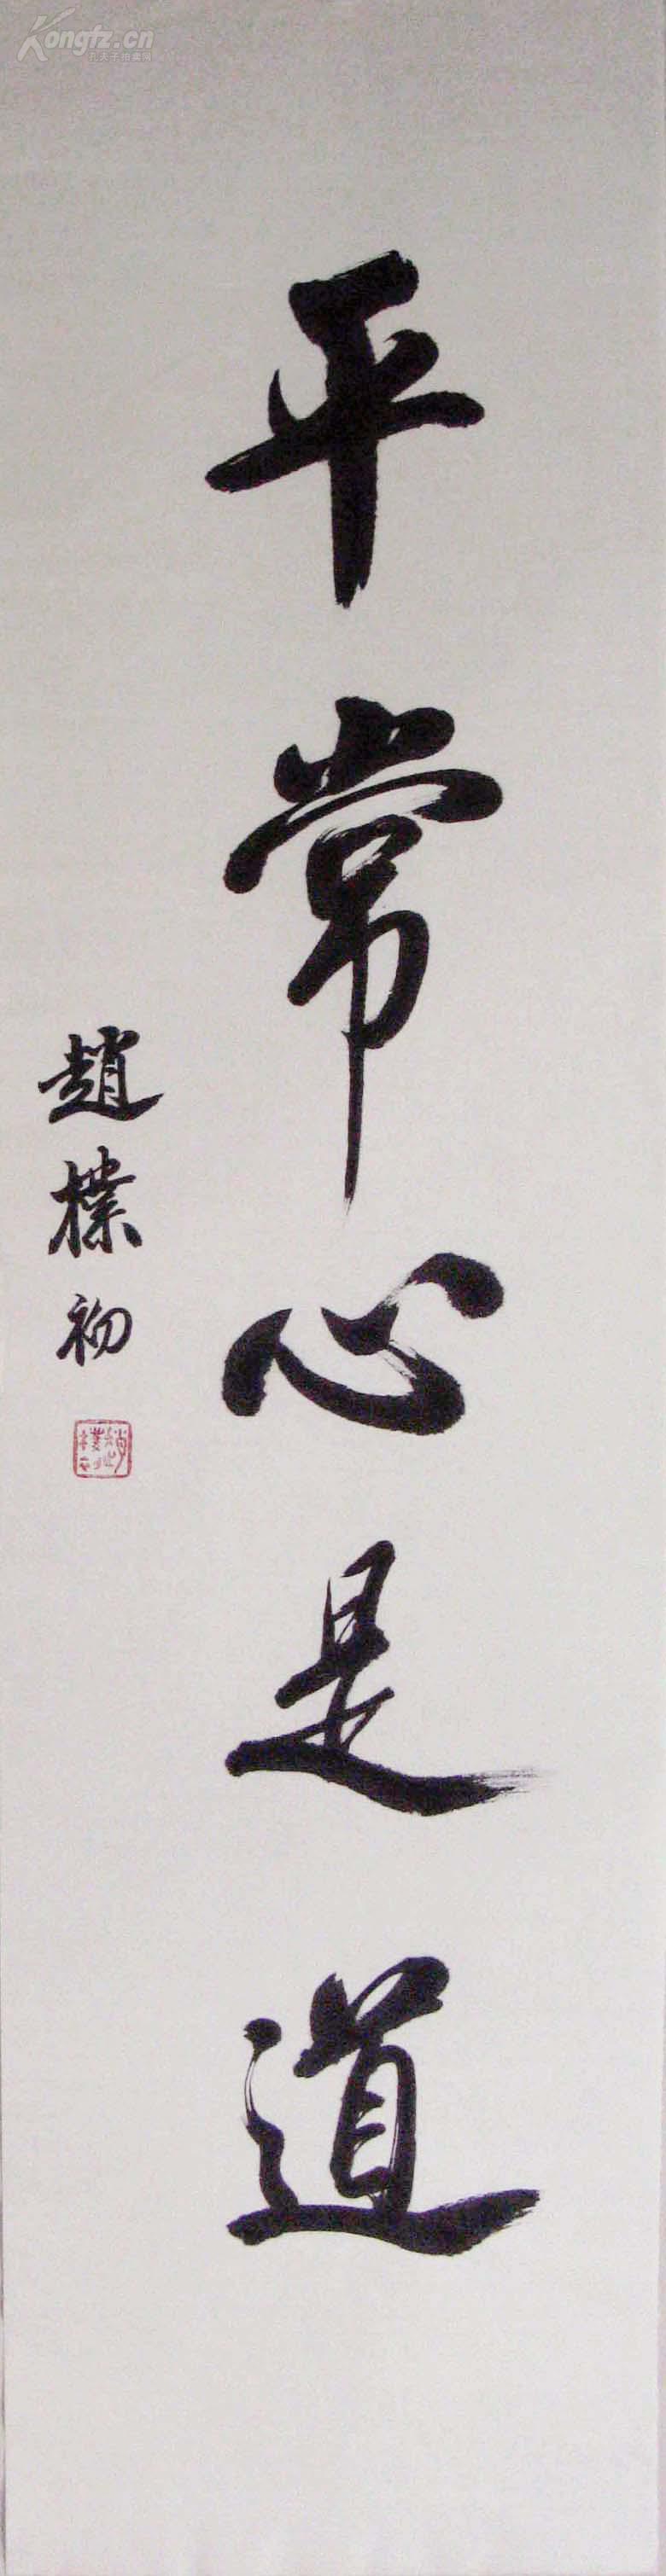 平常心是道
趙樸初
趙樸初
Kongfz.cn
孔夫子旧书网